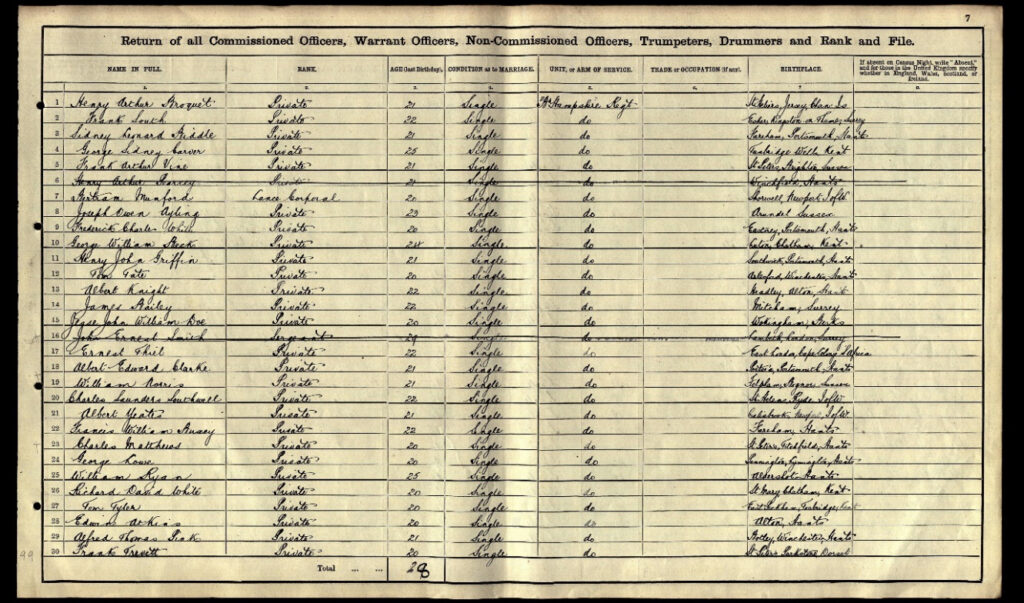 7
Return of all Commissioned Officers, Warrant Officers, Non-Commissioned Officers, Trumpeters, Drummers and Rank and File.
NAME IN FULL. RANK. AGE (last Birthday). CONDITION as to MARRIAGE. UNIT, or ARM OF SERVICE. TRADE or OCCUPATION (if any). BIRTHPLACE. If absent on Census Night, write "Absent," and for those in the United Kingdom specify whether in England, Wales, Scotland, or Ireland.
1. 2. 3. 4. 5. 6. 7. 8.
1 Henry Arthur Broquet Private 21 Single Hampshire Regt Jersey, Chan Is
2 Frank South Private 22 Single do Esher, Kingston on Thames, Surrey
3 Sidney Leonard Biddle Private 21 Single do Fareham, Portsmouth, Hants
4 George Sidney Carver Private 25 Single do Tunbridge Wells Kent
5 Frank Arthur Vine Private 21 Single do St Peters, Brighton, Sussex
6 Henry Arthur Private 21 Single do Winchfield, Hants
7 Bertram Munford Lance Corporal 20 Single do Shorwell, Newport, IofW
8 Joseph Owen Ayling Private 23 Single do Arundel Sussex
9 Frederick Charles White Private 20 Single do Eastney, Portsmouth, Hants
10 George William Private 24 Single do Chatham, Kent
11 Henry John Griffin Private 21 Single do Southwick, Portsmouth, Hants
12 Tom Tate Private 20 Single do Alresford, Winchester, Hants
13 Albert Knight Private 22 Single do Headley, Alton, Hants
14 James Bailey Private 22 Single do Mitcham, Surrey
15 Jesse John William Doe Private 20 Single do Wokingham, Berks
16 John Ernest Smith Sergeant 29 Single do Lambeth, London, Surrey
17 Ernest Thiel Private 22 Single do East London, Cape Colony, S Africa
18 Albert Edward Clarke Private 21 Single do Portsea, Portsmouth, Hants
19 William Norris Private 21 Single do Felpham, Bognor, Sussex
20 Charles Saunders Southwell Private 22 Single do St Helens, Ryde, IofW
21 Albert Yeats Private 21 Single do Calbourne, Newport, IofW
22 Francis William Private 22 Single do Fareham, Hants
23 Charles Matthews Private 20 Single do St Peters, Titchfield, Hants
24 George Lowe Private 20 Single do Lymington, Hants
25 William Ryan Private 25 Single do Aldershot, Hants
26 Richard David White Private 20 Single do St Mary, Chatham, Kent
27 Tom Tyler Private 20 Single do East Peckham, Tonbridge, Kent
28 Edwin Atkins Private 20 Single do Alton, Hants
29 Alfred Thomas Pink Private 21 Single do Winchester, Hants
30 Frank Trevitt Private 20 Single do St Peters Parkstone Dorset
Total ... ... 28